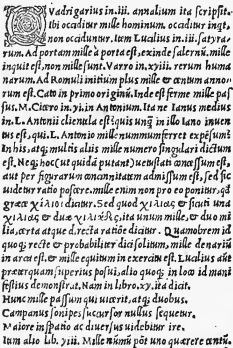 Vadrigarius in.iii. annalium ita scripsit.
ibi occiditur mille hominum. occiditur inqt,
non occiduntur. Item Lucilius in.iii. satyra-
rum. Ad portam mille à porta est, exinde salernũ. mille
inquit est, non mille sunt. Varro in.xviii. rerum huma
narum. Ad Romuli initium plus mille & centum anno-
rum est. Cato in primo originũ. Inde est ferme mille pas
sus. M. Cicero in.yi. in Antonium. Ita ne Ianus medius
in. L. Antonii clientela est? quis unq̃ in illo Iano inuen
tus est, qui. L. Antonio mille nummum ferret expẽsum?
In his, atq; multis aliis mille numero singulari dictum
est. Neq; hoc (ut quidã putant) uetustati concessum est,
aut per figurarum concinnitatem admissum est, sed sic
uidetur ratio poscere. mille enim non pro eo ponitur, qđ
græce χίλιοι dicitur. Sed quod χιλιὰς & sicuti una
χιλιὰς & duæ χιλιάδες, ita unum mille, & duo mi
lia, certa atque directa ratiõe dicitur. Quamobrem id
quoq; recte & probabiliter dici solitum, mille denariũ
in arca est, & mille equitum in exercitu est. Lucilius aũt
præterquam superius posui, alio quoq; in loco id mani
festius demonstrat. Nam in libro.xv. ita dicit.
Hunc mille passum qui uicerit, atq; duobus.
Campanus sonipes succursor nullus sequetur.
Maiore in spatio ac diuersus uidebitur ire.
Item alio Lib. yiii. Mille nũmũ põt uno quærere centũ.